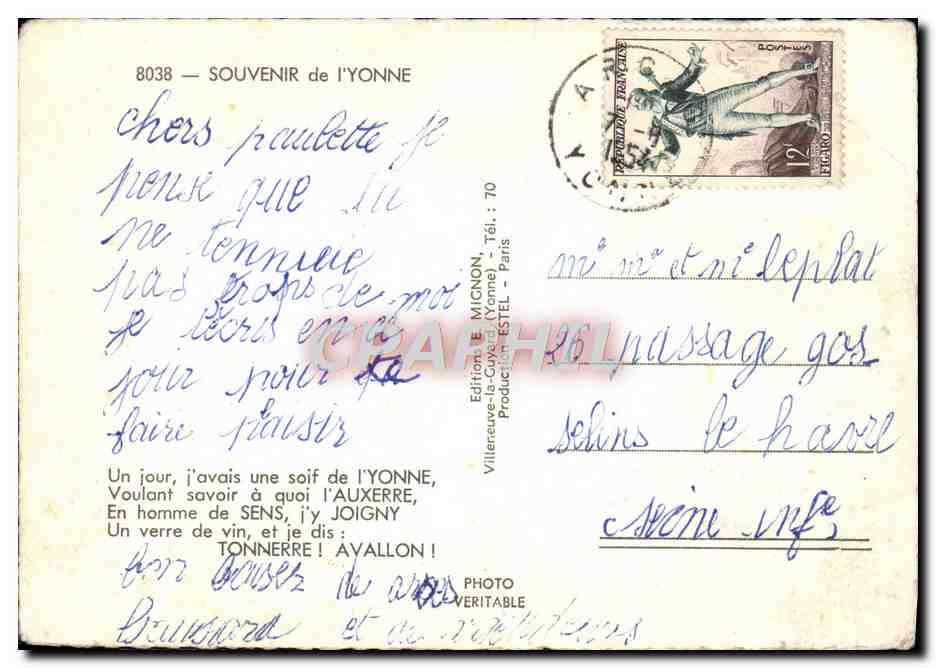 8038 — SOUVENIR de l'YONNE
chers paulette je
pense que tu
ne tennuie
pas trops de moi
je técris en a
jour pour te
faire plaisir
Un jour, j'avais une soif de l'YONNE,
Voulant savoir à quoi l'AUXERRE,
En homme de SENS, j'y JOIGNY
Un verre de vin, et je dis :
TONNERRE ! AVALLON !
bon de
et de
PHOTO
VERITABLE
Editions E. MIGNON,
Villeneuve-la-Guyard (Yonne) - Tél. : 70
Production ESTEL - Paris
REPUBLIQUE FRANÇAISE
POSTES
12F
FIGARO
me mr et me leplat
26 passage gos
selins le havre
seine infe
CPAPHIL